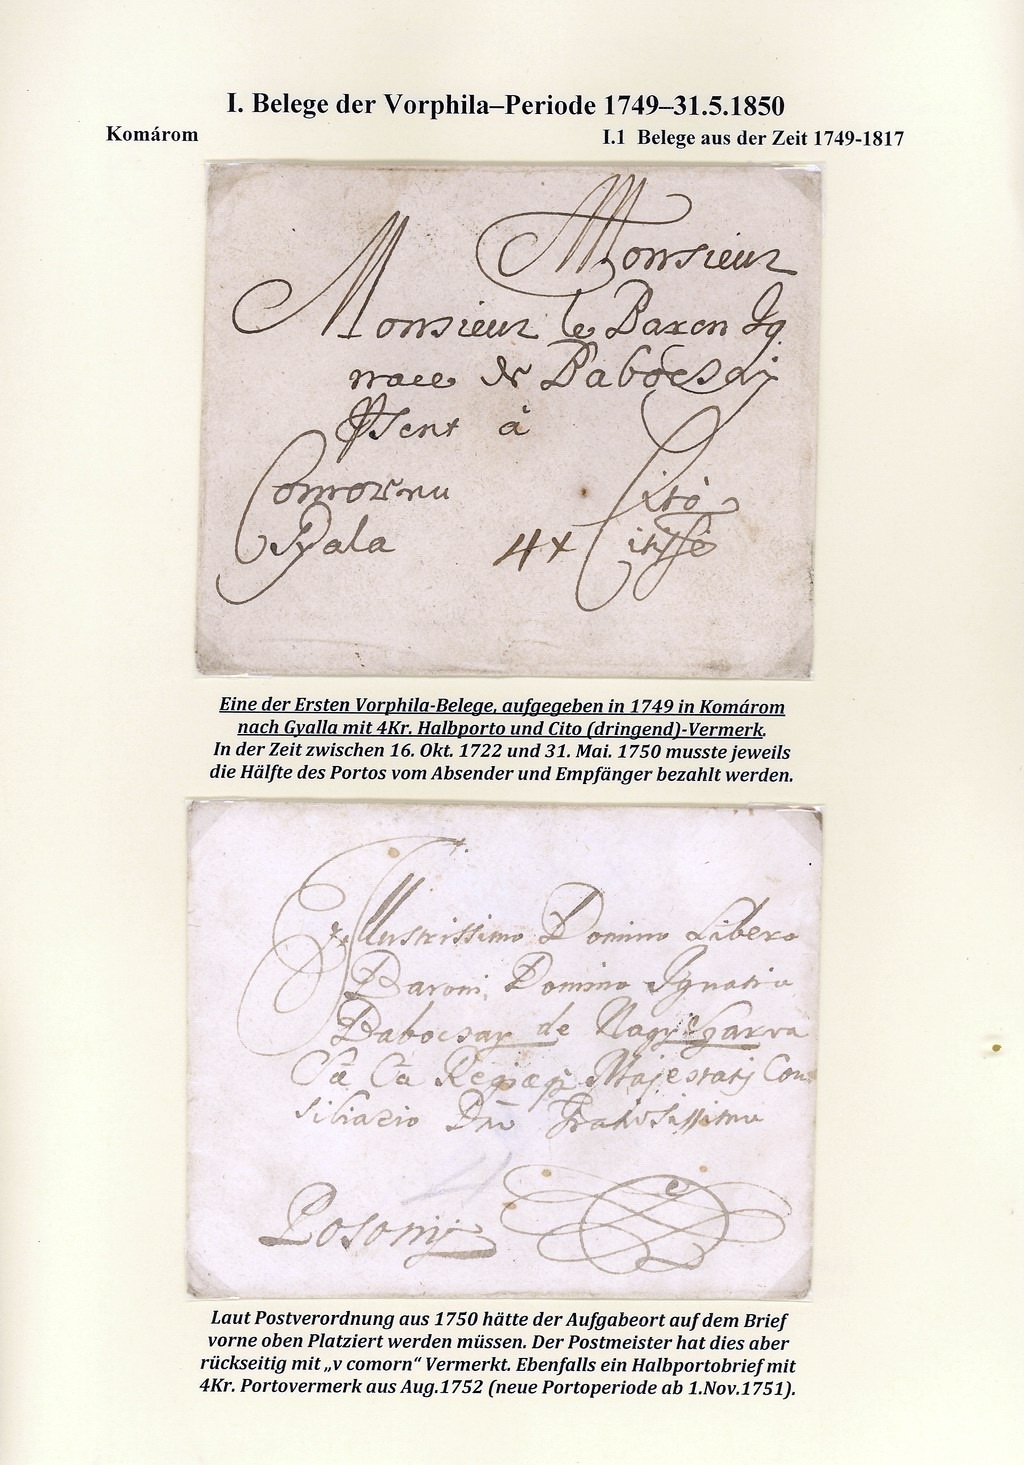 I. Belege der Vorphila–Periode 1749–31.5.1850
Komárom
I.1 Belege aus der Zeit 1749-1817
Monsieur
Monsieur le Baron Ig
nace de Babocsaÿ
Psent à
Comorru
Gyala
4x
Citò
Citissè
Eine der Ersten Vorphila-Belege, aufgegeben in 1749 in Komárom
nach Gyalla mit 4Kr. Halbporto und Cito (dringend)-Vermerk.
In der Zeit zwischen 16. Okt. 1722 und 31. Mai. 1750 musste jeweils
die Hälfte des Portos vom Absender und Empfänger bezahlt werden.
Illustrissimo Domino Libero
Baroni, Domino Ignatio
Babocsay de Nagy Szarva
Regiaeq Majestatis Con
siliario Dno
4
Posonij
Laut Postverordnung aus 1750 hätte der Aufgabeort auf dem Brief
vorne oben Platziert werden müssen. Der Postmeister hat dies aber
rückseitig mit „v comorn“ Vermerkt. Ebenfalls ein Halbportobrief mit
4Kr. Portovermerk aus Aug.1752 (neue Portoperiode ab 1.Nov.1751).